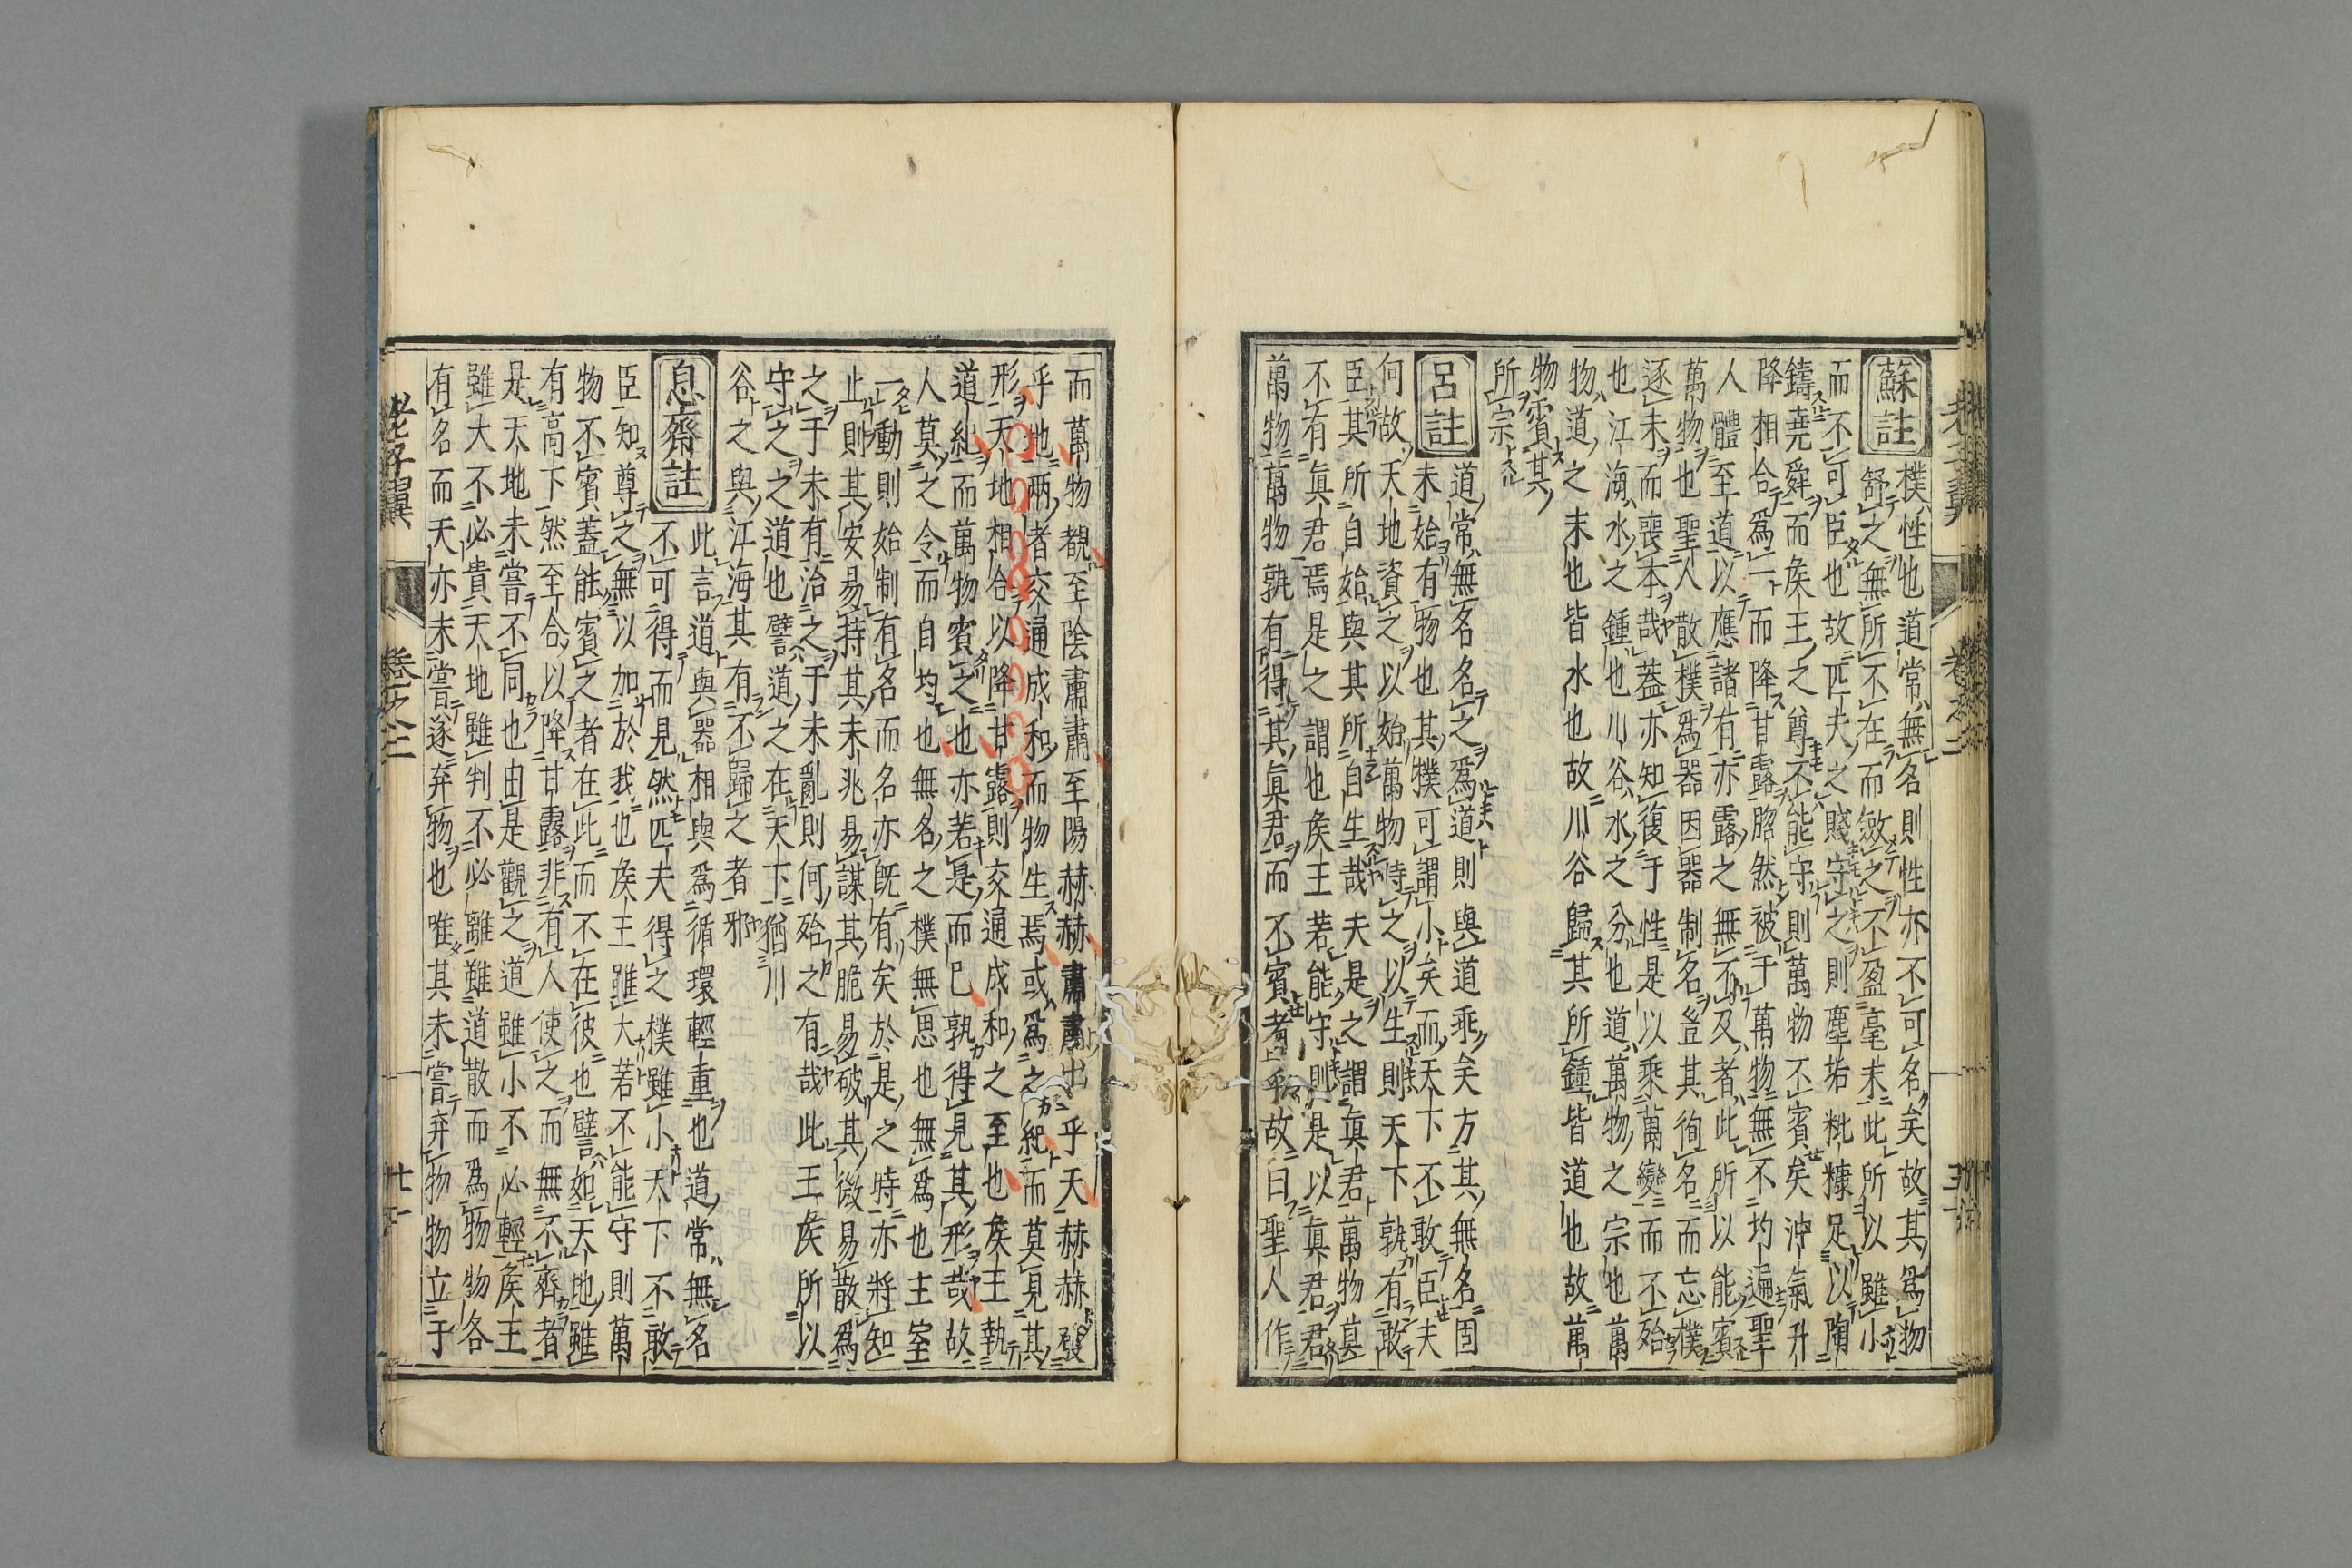 蘇註
樸性也道常無名則性亦不可名矣故其爲物
舒之無所不在而斂之不盈毫末此所以雖小
而不可臣也故匹夫之賤守之則塵垢粃糠足以陶
鑄堯舜而矦王之尊不能守則萬物不賓矣沖氣升
降相合爲一而降甘露脗然被于萬物無不均遍聖
人體至道以應諸有亦露之無不及者此所以能賓
萬物也聖人散樸爲器因器制名豈其徇名而忘樸
逐末而喪本哉蓋亦知復于性是以乘萬變而不殆
也江海水之鍾也川谷水之分也道萬物之宗也萬
物道之末也皆水也故川谷歸其所鍾皆道也故萬
物賓其
所宗
呂註
道常無名名之爲道則與道乖矣方其無名固
未始有物也其樸可謂小矣而天下不敢臣夫
何故天地資之以始萬物恃之以生則天下孰有敢
臣其所自始與其所自生哉夫是之謂眞君萬物莫
不有眞君焉是之謂也矦王若能守則是以眞君君
萬物萬物孰有得其眞君而不賓者乎故曰聖人作
而萬物覩至陰肅肅至陽赫赫肅肅出乎天赫赫發
乎地兩者交通成和而物生焉或爲之紀而莫見其
形天地相合以降甘露則交通成和之至也矦王執
道紀而萬物賓之也亦若是而已孰得見其形哉故
人莫之令而自均也無名之樸無思也無爲也主室
一動則始制有名而名亦旣有矣於是之時亦將知
止則其安易持其未兆易謀其脆易破其微易散爲
之于未有治之于未亂則何殆之有哉此王矦所以
守之之道也譬道之在天下猶川
谷之與江海其有不歸之者邪
息齋註
此言道與器相與爲循環輕重也道常無名
不可得而見然匹夫得之樸雖小天下不敢
臣知尊之無以加於我也矦王雖大若不能守則萬
物不賓蓋能賓之者在此而不在彼也譬如天地雖
有高下然至合以降甘露非有人使之而無不齊者
是天地未嘗不同也由是觀之道雖小不必輕矦王
雖大不必貴天地雖判不必離雖道散而爲物物各
有名而天亦未嘗逐弃物也唯其未嘗弃物物立于
老子翼
卷之二
廿一